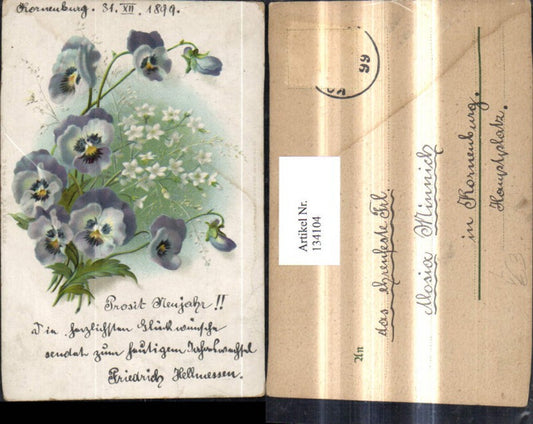 Kornenburg. 31. XII. 1899.
Prosit Neujahr !!
Die herzlichsten Glückwünsche
sendet zum heutigen Jahreswechsel
Friedrich Hellmessen.
99
Artikel Nr.
134104
An
das ehrenfeste Frl.
Aloisia Minnich
in Kornenburg.
Hauptplatz.